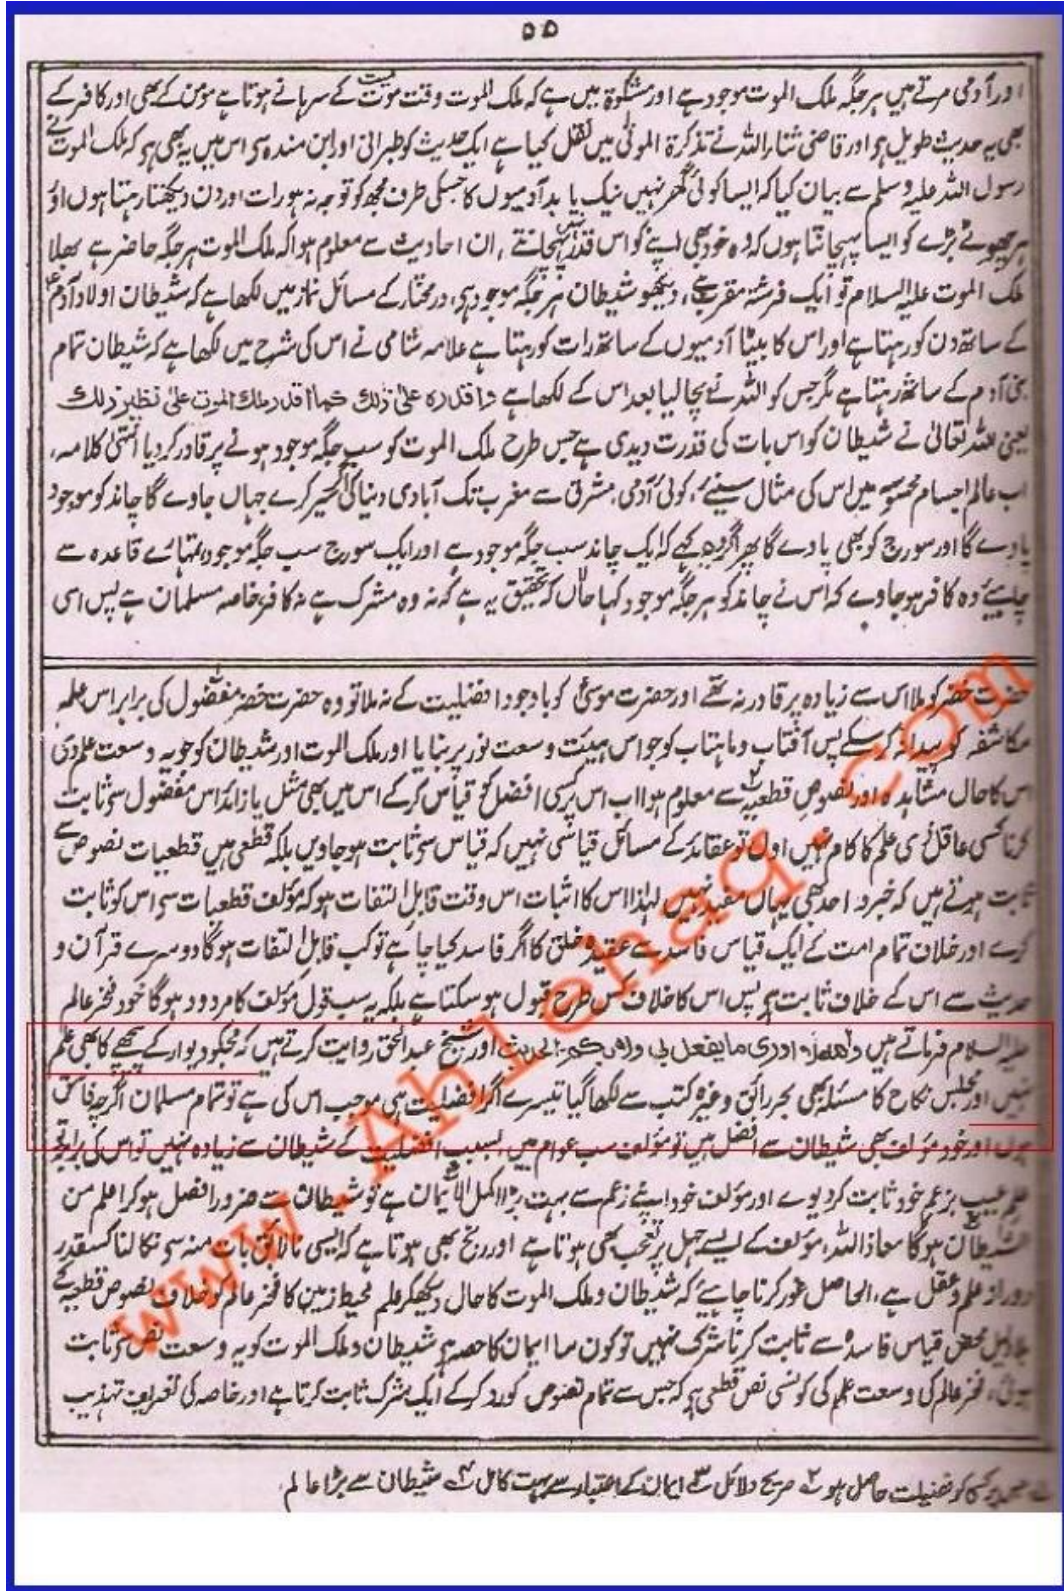 ۵۵
اور آدمی مرتے ہیں ہر جگہ ملک الموت موجود ہے اور مشکوٰۃ میں ہے کہ ملک الموت وقت موت کے سرہانے ہوتا ہے مومن کے بھی اور کافر کے
بھی یہ حدیث طویل ہے اور قاضی ثناء اللہ نے تذکرۃ الموتٰی میں نقل کیا ہے ایک حدیث کو طبرانی اور ابن مندہ سے اس میں یہ بھی ہے کہ ملک الموت نے
رسول اللہ علیہ وسلم سے بیان کیا کہ ایسا کوئی گھر نہیں نیک یا بد آدمیوں کا جسکی طرف مجھ کو توجہ نہ ہو رات اور دن دیکھتا رہتا ہوں اور
ہر چھوٹے بڑے کو ایسا پہچانتا ہوں کہ وہ خود بھی اپنے کو اس قدر نہیں پہچانتے، ان احادیث سے معلوم ہوا کہ ملک الموت ہر جگہ حاضر ہے بھلا
ملک الموت علیہ السلام تو ایک فرشتہ مقرب ہے، دیکھو شیطان ہر جگہ موجود ہے، درمختار کے مسائل نماز میں لکھا ہے کہ شیطان اولاد آدم
کے ساتھ دن کو رہتا ہے اور اس کا بیٹا آدمیوں کے ساتھ رات کو رہتا ہے علامہ شامی نے اس کی شرح میں لکھا ہے کہ شیطان تمام
بنی آدم کے ساتھ رہتا ہے مگر جس کو اللہ نے بچا لیا بعد اس کے لکھا ہے و اقدرہ علیٰ ذلک کما اقدر ملک الموت علیٰ نظیر ذلک
یعنی اللہ تعالیٰ نے شیطان کو اس بات کی قدرت دیدی ہے جس طرح ملک الموت کو سب جگہ موجود ہونے پر قادر کر دیا انتہیٰ کلامہ،
اب عالم اجسام محسوسہ میں اس کی مثال سنیئے، کوئی آدمی مشرق سے مغرب تک آبادی دنیا کی اگر سیر کرے جہاں جاوے گا چاند کو موجود
پاوے گا اور سورج کو بھی پاوے گا پھر اگر وہ کہے کہ ایک چاند سب جگہ موجود ہے اور ایک سورج سب جگہ موجود، تمہارے قاعدہ سے
چاہیئے وہ کافر ہو جاوے کہ اس نے چاند کو ہر جگہ موجود کہا حالاں کہ تحقیق یہ ہے کہ نہ وہ مشرک ہے نہ کافر خاصہ مسلمان ہے پس اسی
حضرت خضر کو ملا اس سے زیادہ پر قادر نہ تھے اور حضرت موسیٰ کو باوجود افضلیت کے نہ ملا تو وہ حضرت خضر مفضول کی برابر اس علم
مکاشفہ کو پیدا نہ کر سکے پس آفتاب و ماہتاب کو جو اس ہیئت و وسعت نور پر بنایا اور ملک الموت اور شیطان کو جو یہ وسعت علم دی
اس کا حال مشاہدہ اور نصوص قطعیہ سے معلوم ہوا اب اس پر کسی افضل کو قیاس کر کے اس میں بھی مثل یا زائد اس مفضول سے ثابت
کرنا کسی عاقل ذی علم کا کام نہیں اول تو عقائد کے مسائل قیاسی نہیں کہ قیاس سے ثابت ہو جاویں بلکہ قطعی ہیں قطعیات نصوص سے
ثابت ہوتے ہیں کہ خبر واحد بھی یہاں مفید نہیں لہٰذا اس کا اثبات اس وقت قابل التفات ہو کہ مؤلف قطعیات سے اس کو ثابت
کرے اور خلاف تمام امت کے ایک قیاس فاسد سے عقیدہ خلق کا اگر فاسد کیا چاہے تو کب قابل التفات ہوگا دوسرے قرآن و
حدیث سے اس کے خلاف ثابت ہے پس اس کا خلاف کس طرح قبول ہو سکتا ہے بلکہ یہ سب قول مؤلف کا مردود ہوگا خود فخر عالم
علیہ السلام فرماتے ہیں واللہ لا ادری ما یفعل بی ولا بکم الحدیث اور شیخ عبدالحق روایت کرتے ہیں کہ مجھکو دیوار کے پیچھے کا بھی علم
نہیں اور مجلس نکاح کا مسئلہ بھی بحر رائق وغیرہ کتب سے لکھا گیا تیسرے اگر افضلیت ہی موجب اس کی ہے تو تمام مسلمان اگرچہ فاسق
ہوں اور خود مؤلف بھی شیطان سے افضل ہیں تو مؤلف سب عوام میں بسبب افضلیت کے شیطان سے زیادہ نہیں تو اس کی برابر تو
علم غیب بزعم خود ثابت کر دیوے اور مؤلف خود اپنے زعم سے بہت بڑا اکمل الایمان ہے تو شیطان سے ضرور افضل ہو کر اعلم من
الشیطان ہوگا معاذ اللہ، مؤلف کے ایسے جہل پر تعجب بھی ہوتا ہے اور رنج بھی ہوتا ہے کہ ایسی نالائق بات منہ سے نکالنا کسقدر
دور از علم و عقل ہے، الحاصل غور کرنا چاہیئے کہ شیطان و ملک الموت کا حال دیکھ کر علم محیط زمین کا فخر عالم کو خلاف نصوص قطعیہ کے
بلا دلیل محض قیاس فاسدہ سے ثابت کرنا شرک نہیں تو کون سا ایمان کا حصہ ہے شیطان و ملک الموت کو یہ وسعت نص سے ثابت
ہوئی، فخر عالم کی وسعت علم کی کونسی نص قطعی ہے کہ جس سے تمام نصوص کو رد کر کے ایک شرک ثابت کرتا ہے اور خاصہ کی تعریف تہذیب
کسی کو فضیلت حاصل ہو ۲ صریح دلائل ۳ ایمان کے اعتبار سے بہت کامل ۴ شیطان سے بڑا عالم
www.Ahlehaq.com